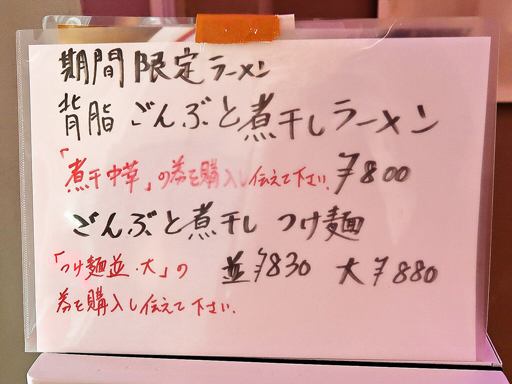 期間限定ラーメン
背脂ごんぶと煮干しラーメン
「煮干中華」の券を購入し伝えて下さい。 ¥800
ごんぶと煮干し つけ麺
「つけ麺並・大」の 並¥830 大¥880
券を購入し伝えて下さい。